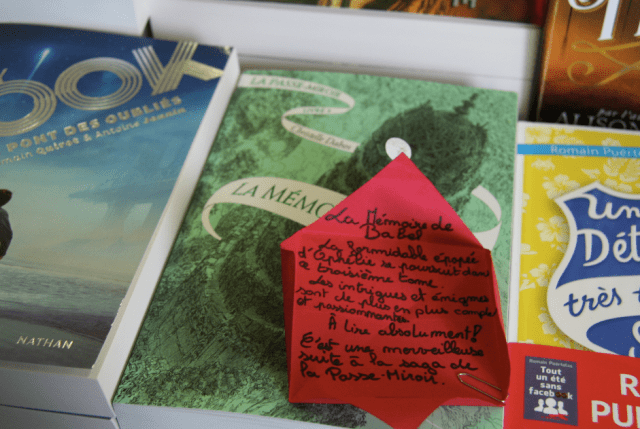 OOK
PONT DES OUBLIÉS
main Quirot & Antoine Jaunin
NATHAN
LA PASSE-MIROIR
LIVRE 3
Christelle Dabos
LA MÉMO
La Mémoire de
Babel
La formidable épopée
d'Ophélie se poursuit dans
ce troisième tome.
Les intrigues et énigmes
sont de plus en plus complexes
et passionnantes.
À lire absolument!
C'est une merveilleuse
suite à la saga de
la Passe-Miroir.
par l'au
ALISON
Romain Puérto
Un
Dét
très t
Romain Puértolas
Tout
un été
sans
facebook
R
PU